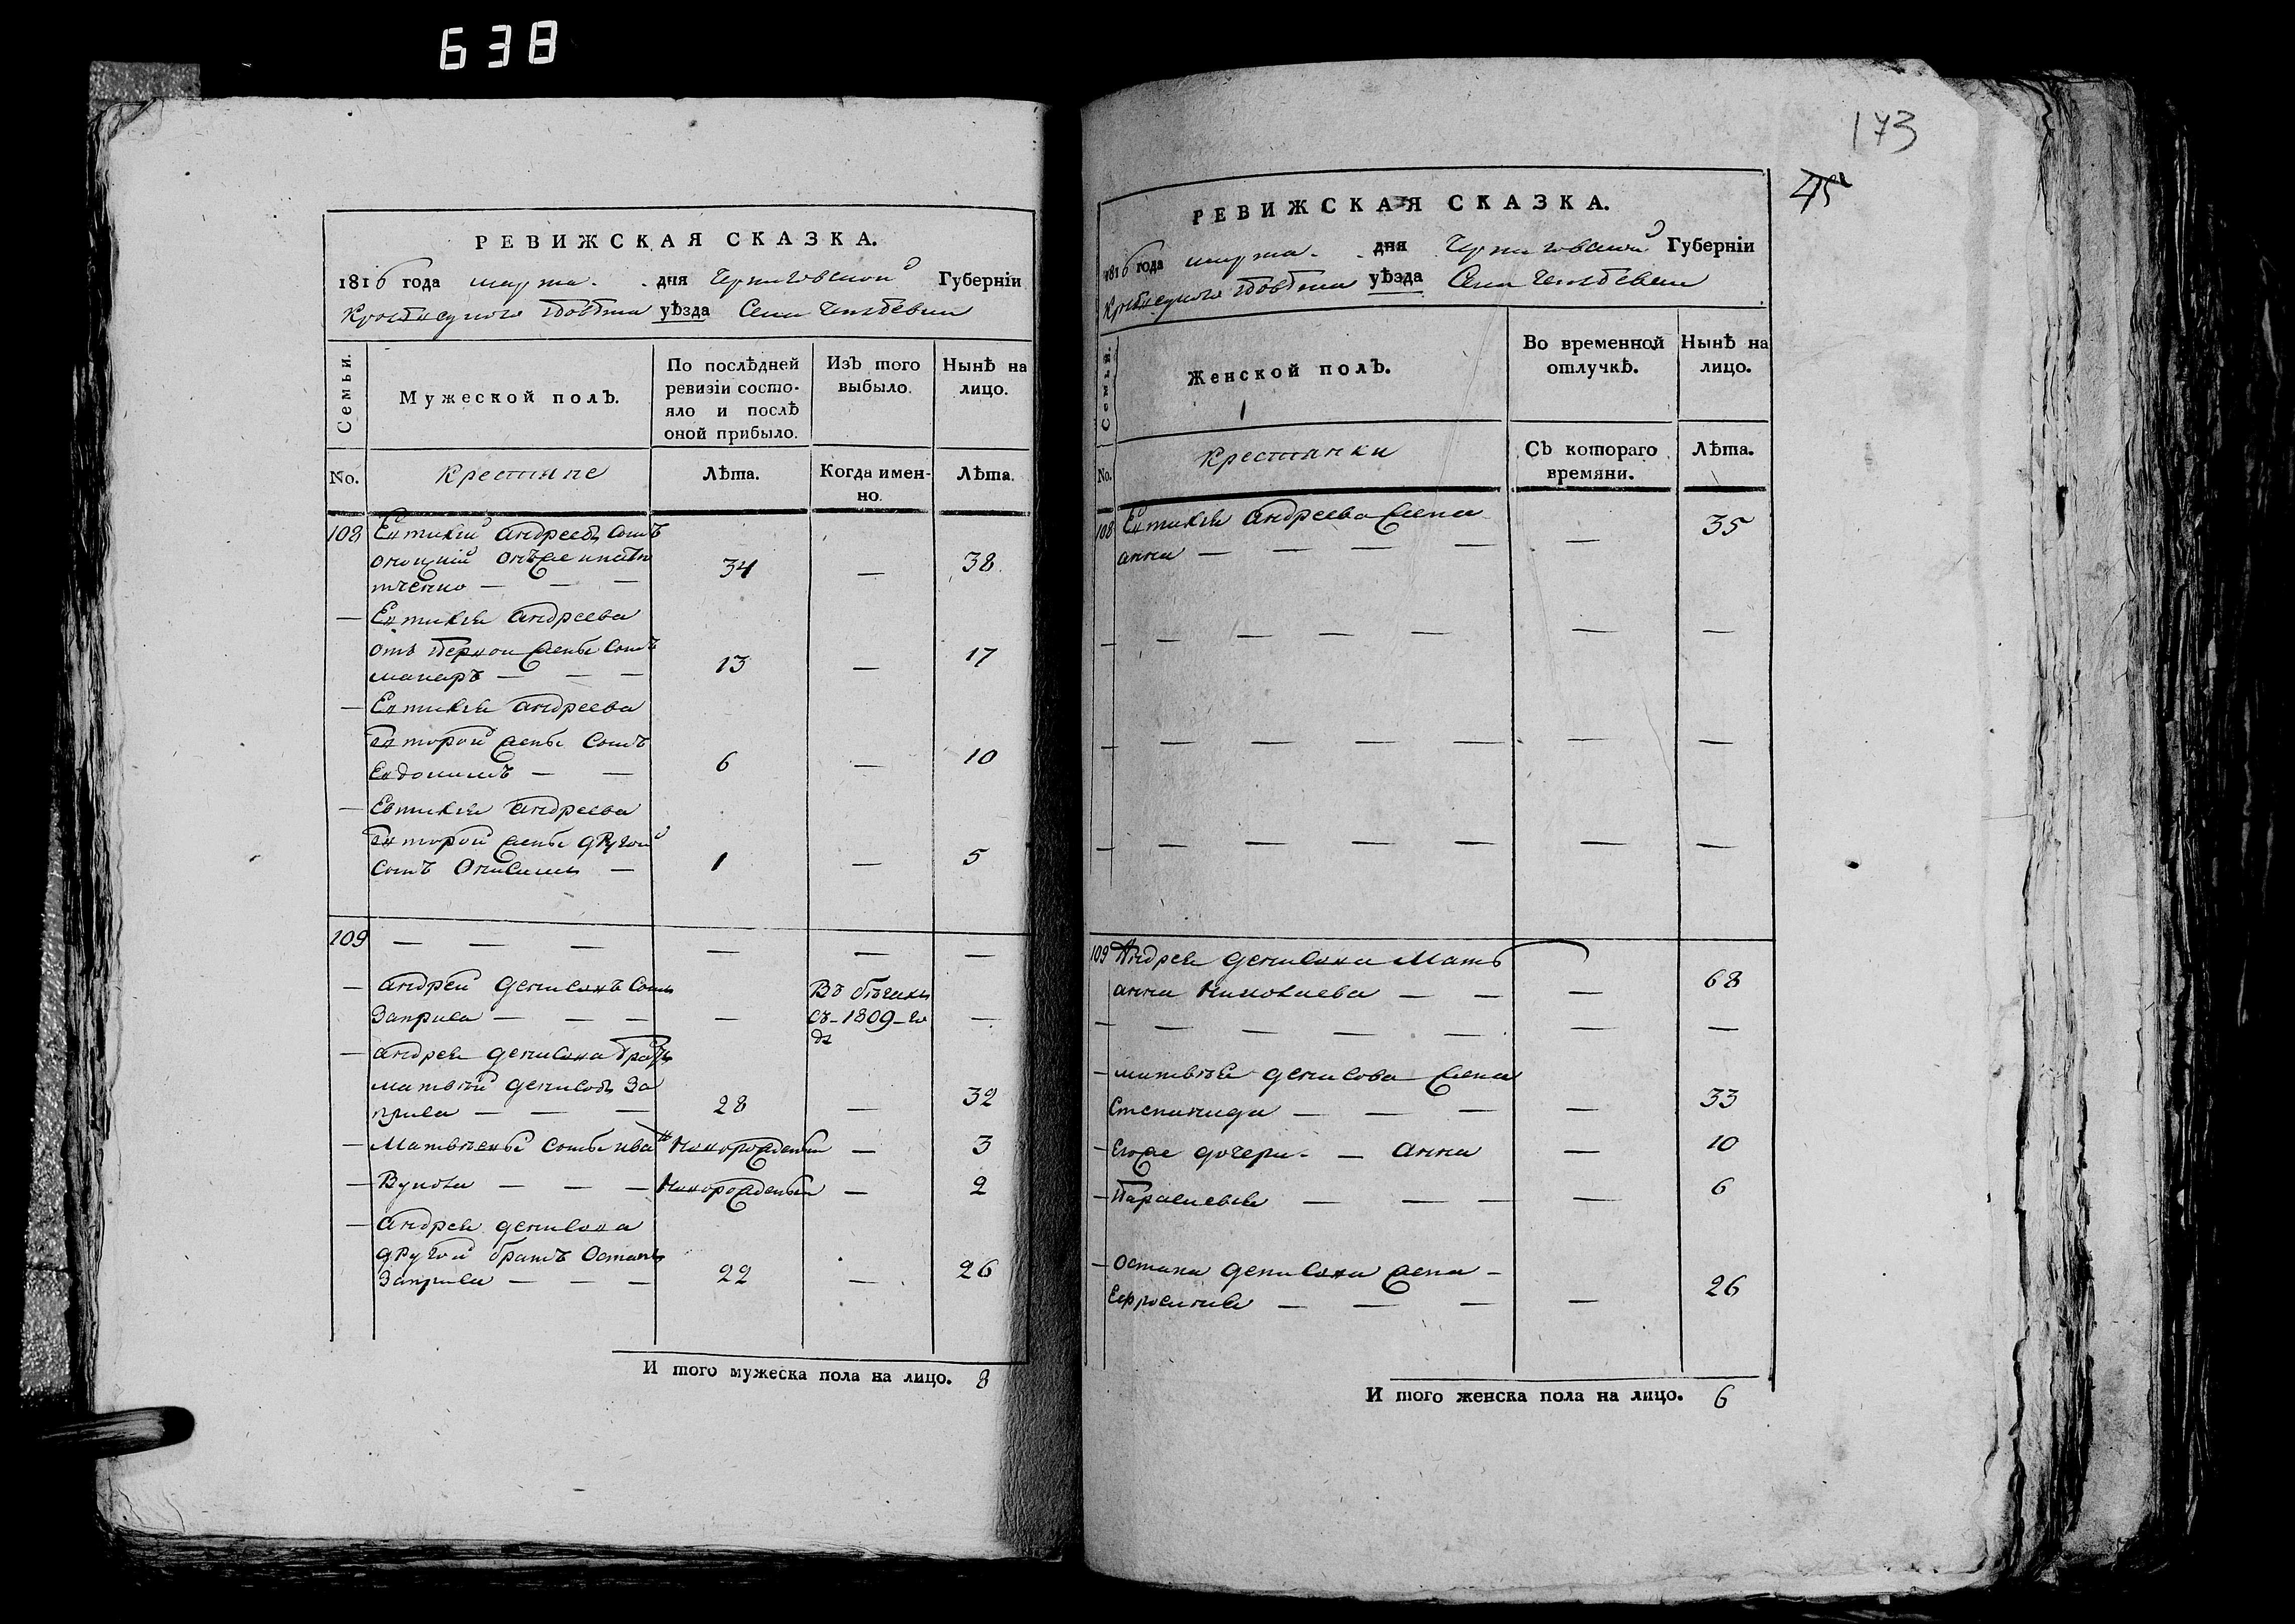 638
РЕВИЖСКАЯ СКАЗКА.
1816 года марта дня Черниговской Губерніи
уѣзда Села
Семьи.
Мужеской полъ.
По послѣдней ревизіи состояло и послѣ оной прибыло.
Изъ того выбыло.
Нынѣ на лицо.
No.
Крестяне
Лѣта.
Когда именно.
Лѣта.
108 Евтихій Андреевъ сынъ
34 — 38
— Евтихія Андреева
отъ первой жены сынъ
макаръ — — — 13 — 17
— Евтихія Андреева
второй жены сынъ
Евдокимъ — — 6 — 10
— Евтихія Андреева
второй жены другой
сынъ Онисимъ — 1 — 5
109 — — — — — —
— Андрей Денисовъ сынъ
Заприса — — — — Въ бѣгахъ съ 1809 года —
— Андрея Денисова братъ
матвѣй Денисовъ Заприса — — — 28 — 32
— Матвѣевы сыны Ива новорожденны — 3
— Вукола — — — новорожденны — 2
— Андрея Денисова
другой братъ Остапъ
Заприса — — — 22 — 26
И того мужеска пола на лицо. 8
173
45
РЕВИЖСКАЯ СКАЗКА.
1816 года марта дня Черниговской Губерніи
уѣзда Села
Семьи.
Женской полъ.
Во временной отлучкѣ.
Нынѣ на лицо.
No.
Крестянки
Съ котораго времяни.
Лѣта.
108 Евтихія Андреева жена
анна — — — — — 35
— — — — — — —
— — — — — — —
— — — — — — —
109 Андрея Денисова Мать
анна Николаева — — — 68
— — — — — — —
— матвѣя Денисова жена
Степанида — — — — 33
— Егоже дочери — Анна — 10
— Параскевія — — — — 6
— Остапа Денисова жена —
Ефросинія — — — — 26
И того женска пола на лицо. 6